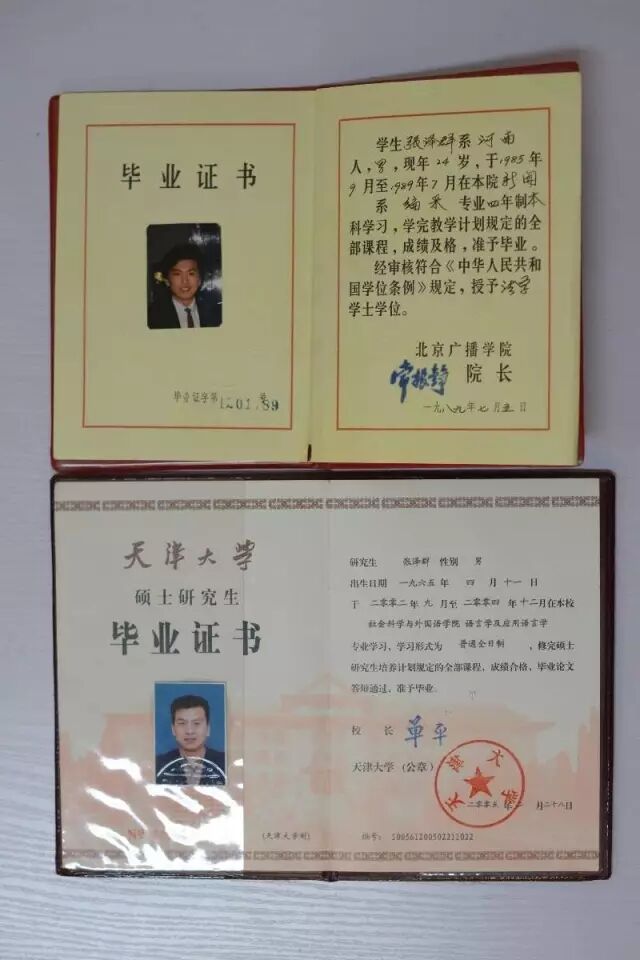 毕业证书
毕业证字第1201789号
学生张泽群系河南
人，男，现年24岁，于1985年
9月至1989年7月在本院新闻
系 编采 专业四年制本
科学习，学完教学计划规定的全
部课程，成绩及格，准予毕业。
经审核符合《中华人民共和
国学位条例》规定，授予法学
学士学位。
北京广播学院
常振铮 院长
一九八九年七月五日
天津大学
硕士研究生
毕业证书
(天津大学制)
研究生 张泽群 性别 男
出生日期 一九六五年 四 月 十一 日
于 二〇〇二年 九 月至 二〇〇四 年 十二月在本校
社会科学与外国语学院 语言学及应用语言学
专业学习，学习形式为 普通全日制 ，修完硕士
研究生培养计划规定的全部课程，成绩合格，毕业论文
答辩通过，准予毕业。
校 长 单平
天津大学（公章）
天津大学
二〇〇五年 月二十八日
编号：100561200502211022